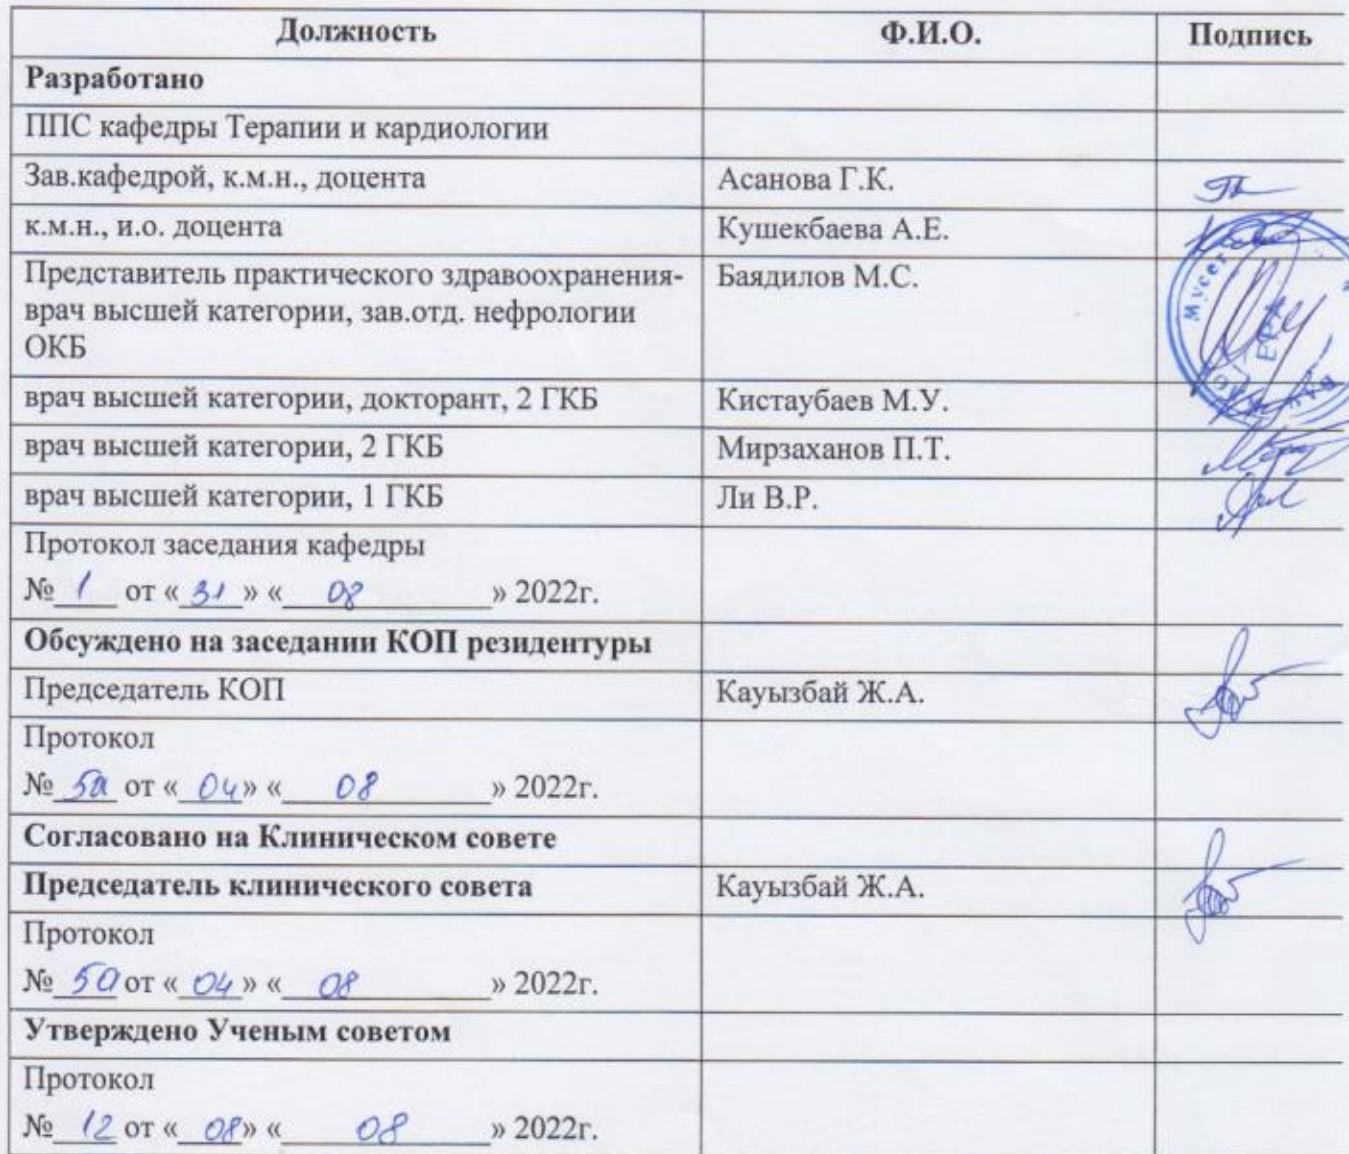 Должность Ф.И.О. Подпись
Разработано
ППС кафедры Терапии и кардиологии
Зав.кафедрой, к.м.н., доцента Асанова Г.К.
к.м.н., и.о. доцента Кушекбаева А.Е.
Представитель практического здравоохранения- Баядилов М.С.
врач высшей категории, зав.отд. нефрологии
ОКБ
врач высшей категории, докторант, 2 ГКБ Кистаубаев М.У.
врач высшей категории, 2 ГКБ Мирзаханов П.Т.
врач высшей категории, 1 ГКБ Ли В.Р.
Протокол заседания кафедры
№ 1 от « 31 » « 08 » 2022г.
Обсуждено на заседании КОП резидентуры
Председатель КОП Кауызбай Ж.А.
Протокол
№ 5а от « 04 » « 08 » 2022г.
Согласовано на Клиническом совете
Председатель клинического совета Кауызбай Ж.А.
Протокол
№ 5а от « 04 » « 08 » 2022г.
Утверждено Ученым советом
Протокол
№ 12 от « 08 » « 08 » 2022г.